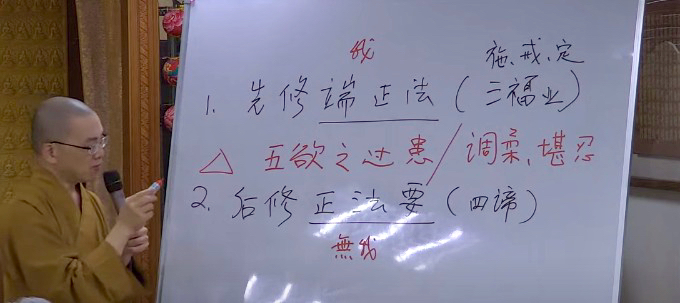 我
施、戒、定
1. 先修端正法(三福业)
△ 五欲之过患/调柔、堪忍
2. 后修正法要(四谛)
無我